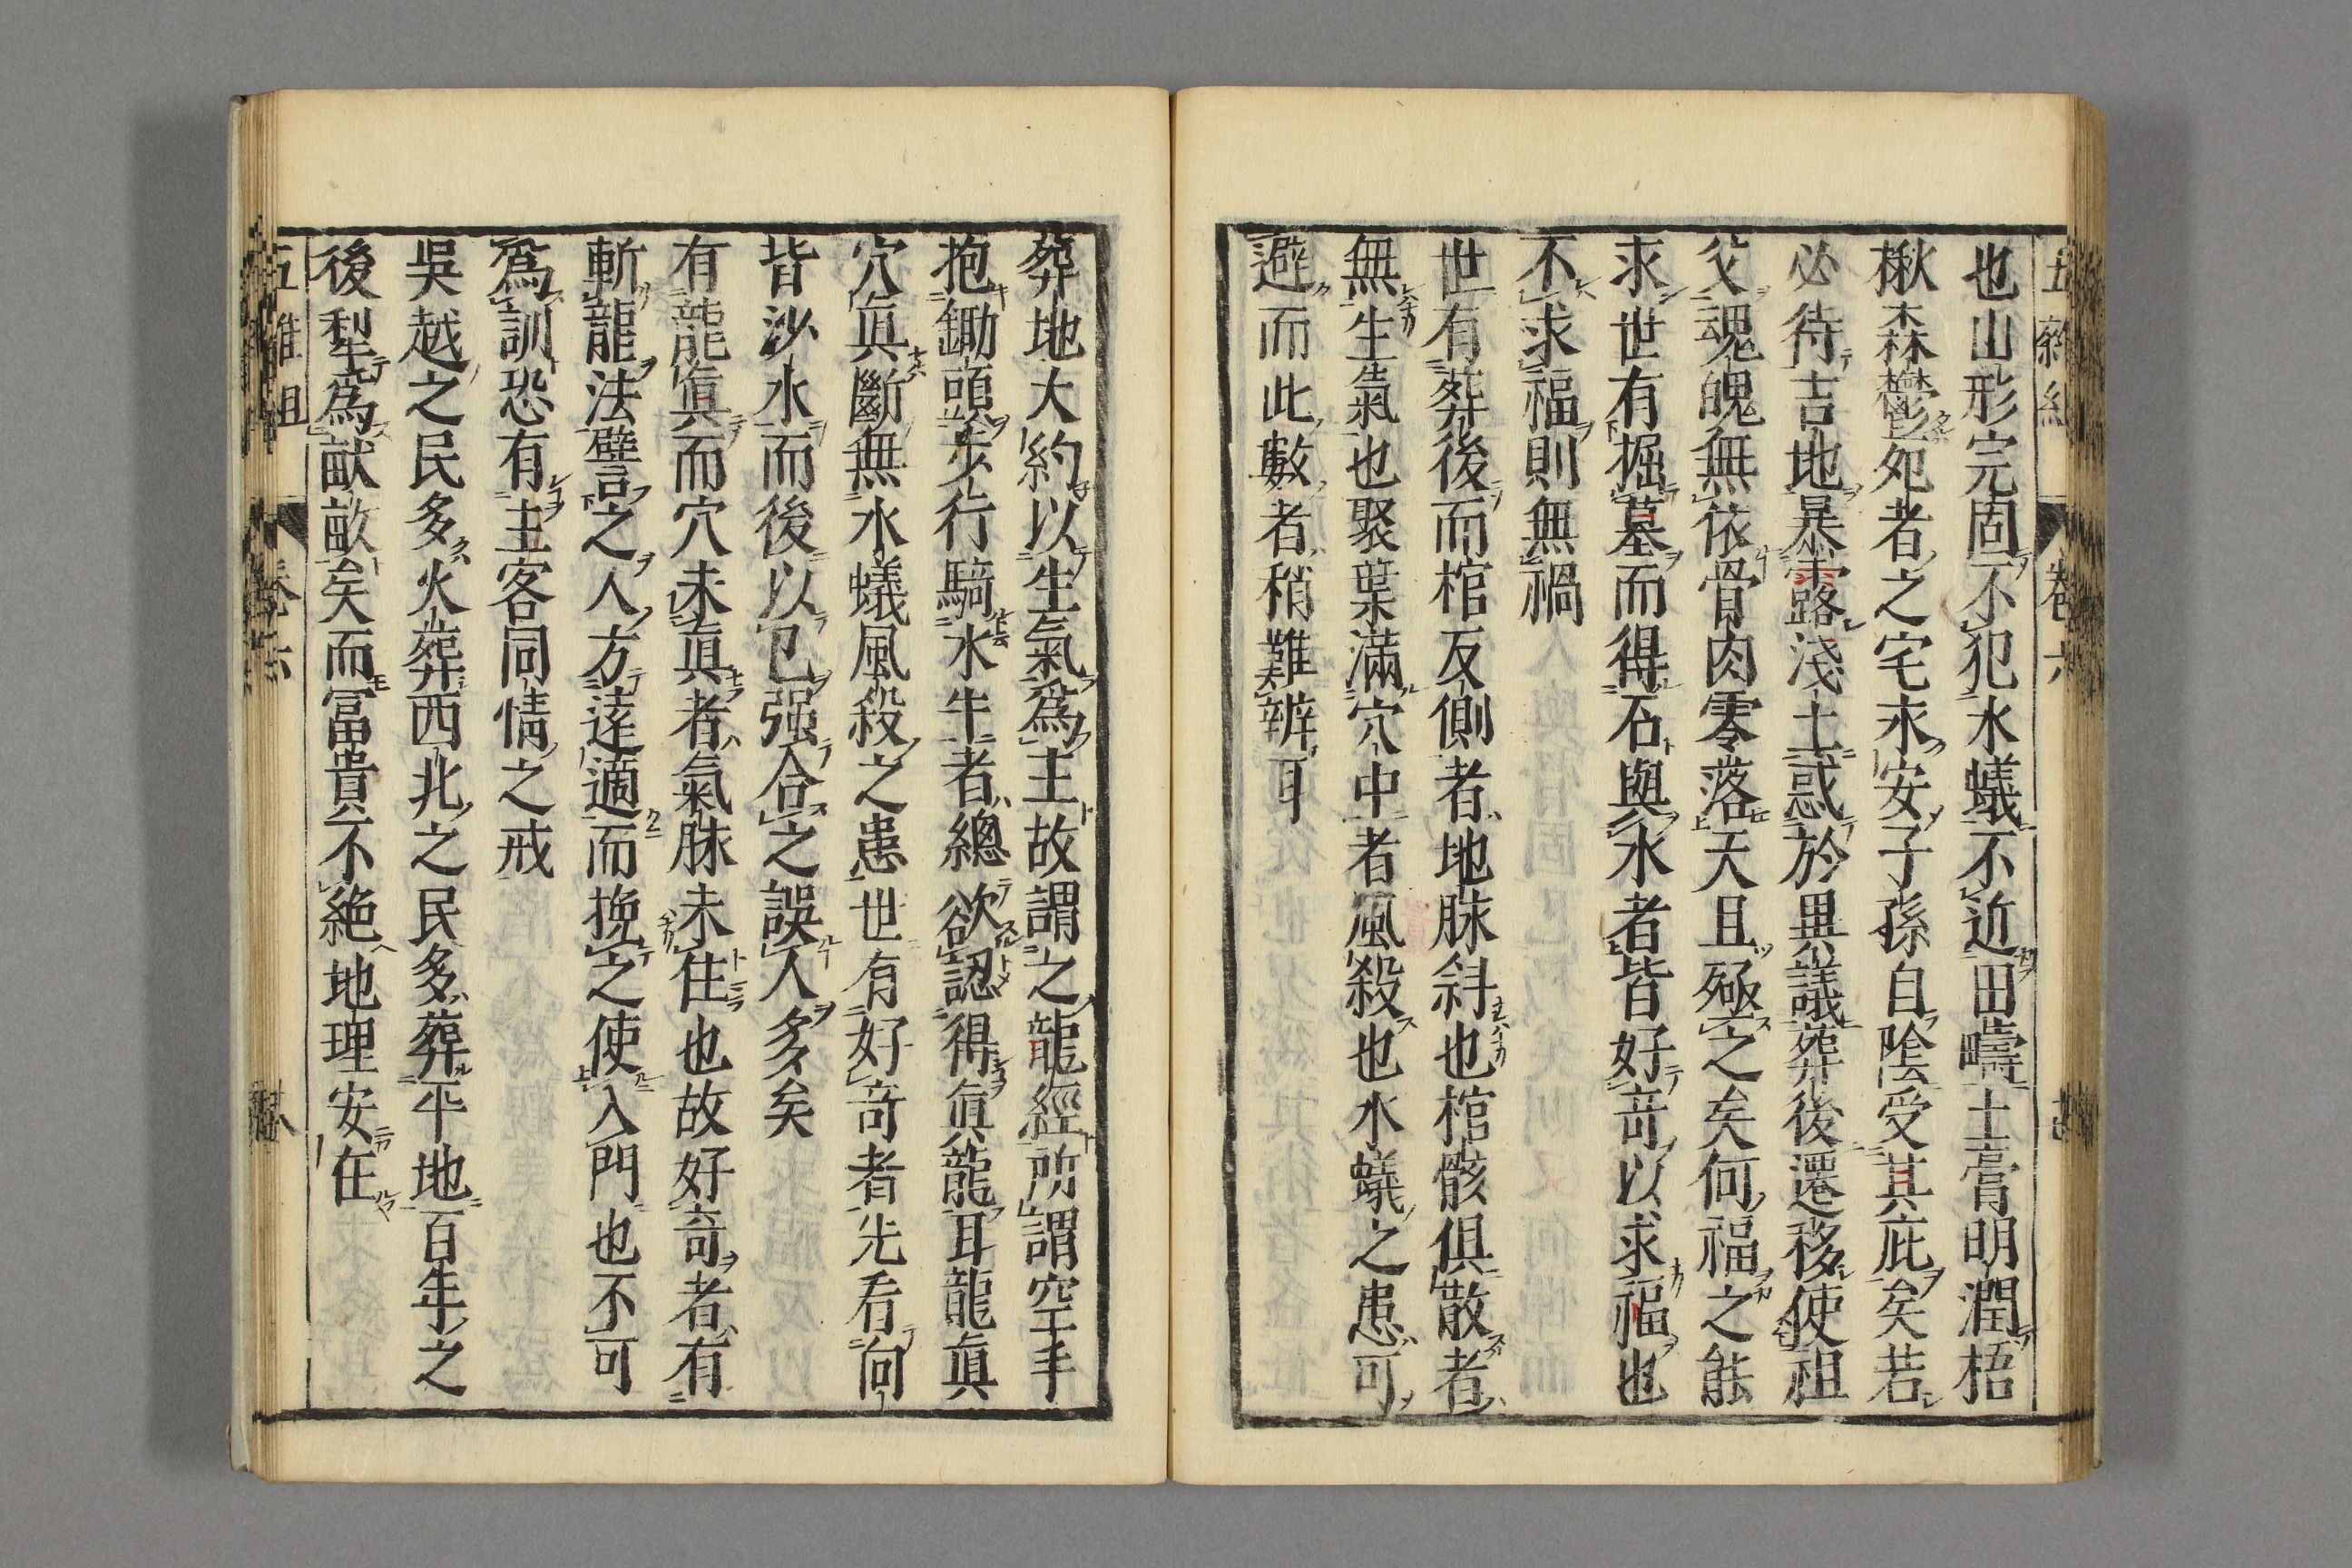 也山形完固不犯水蟻不近田疇土膏明潤梧
楸森鬱死者之宅求安子孫自陰受其庇矣若
必待吉地暴露淺土惑於異議葬後遷移使祖
父魂魄無依骨肉零落天且殛之矣何福之能
求世有掘墓而得石與水者皆好竒以求福也
不求福則無禍
世有葬後而棺反側者地脉斜也棺骸俱散者
無生氣也聚葉滿穴中者風殺也水蟻之患可
避而此數者稍難辨耳
葬地大約以生氣爲主故謂之龍經所謂空手
抱鋤頭步行騎水牛者總欲認得眞龍耳龍眞
穴眞斷無水蟻風殺之患世有好竒者先看向
皆沙水而後以己强合之誤人多矣
有龍眞而穴未眞者氣脉未住也故好竒者有
斬龍法譬之人方遠適而挽之使入門也不可
爲訓恐有主客同情之戒
吳越之民多火葬西北之民多葬平地百年之
後犁爲畎畝矣而冨貴不絶地理安在
卷六